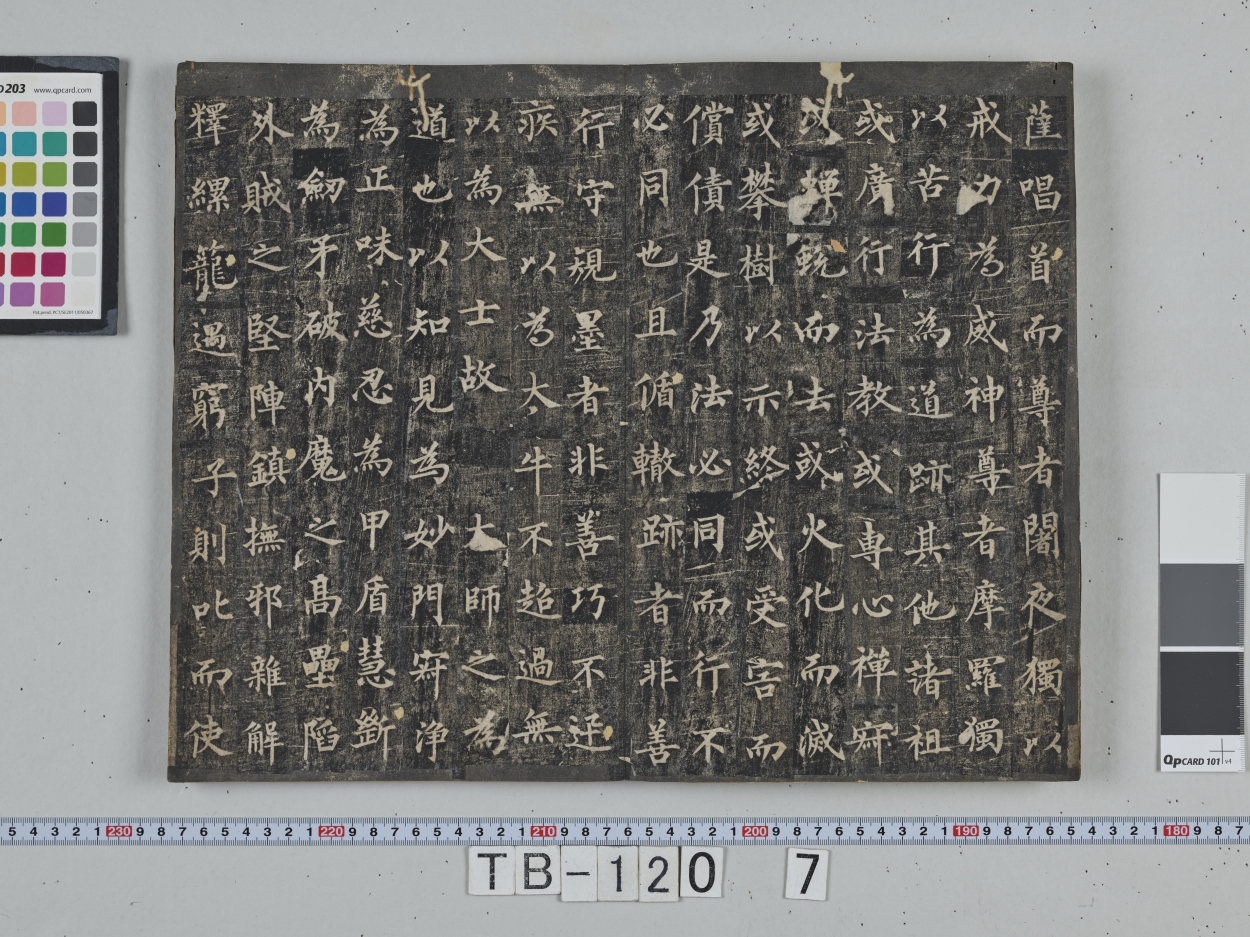 薩唱首而尊者闍夜獨以
戒力為威神尊者摩羅獨
以苦行為道跡其他諸祖
或廣行法教或專心禪寂
或蟬蛻而去或火化而滅
或攀樹以示終或受害而
償債是乃法必同而行不
必同也且循轍跡者非善
行守規墨者非善巧不迅
疾無以為大牛不超過無
以為大士故大師之為
道也以知見為妙門寂淨
為正味慈忍為甲盾慧斷
為劒矛破內魔之高壘陷
外賊之堅陣鎮撫邪雜解
釋縲籠遇窮子則叱而使
203 www.qpcard.com
QPCARD 101 v4
5 4 3 2 1 230 9 8 7 6 5 4 3 2 1 220 9 8 7 6 5 4 3 2 1 210 9 8 7 6 5 4 3 2 1 200 9 8 7 6 5 4 3 2 1 190 9 8 7 6 5 4 3 2 1 180 9 8 7
TB-120 7